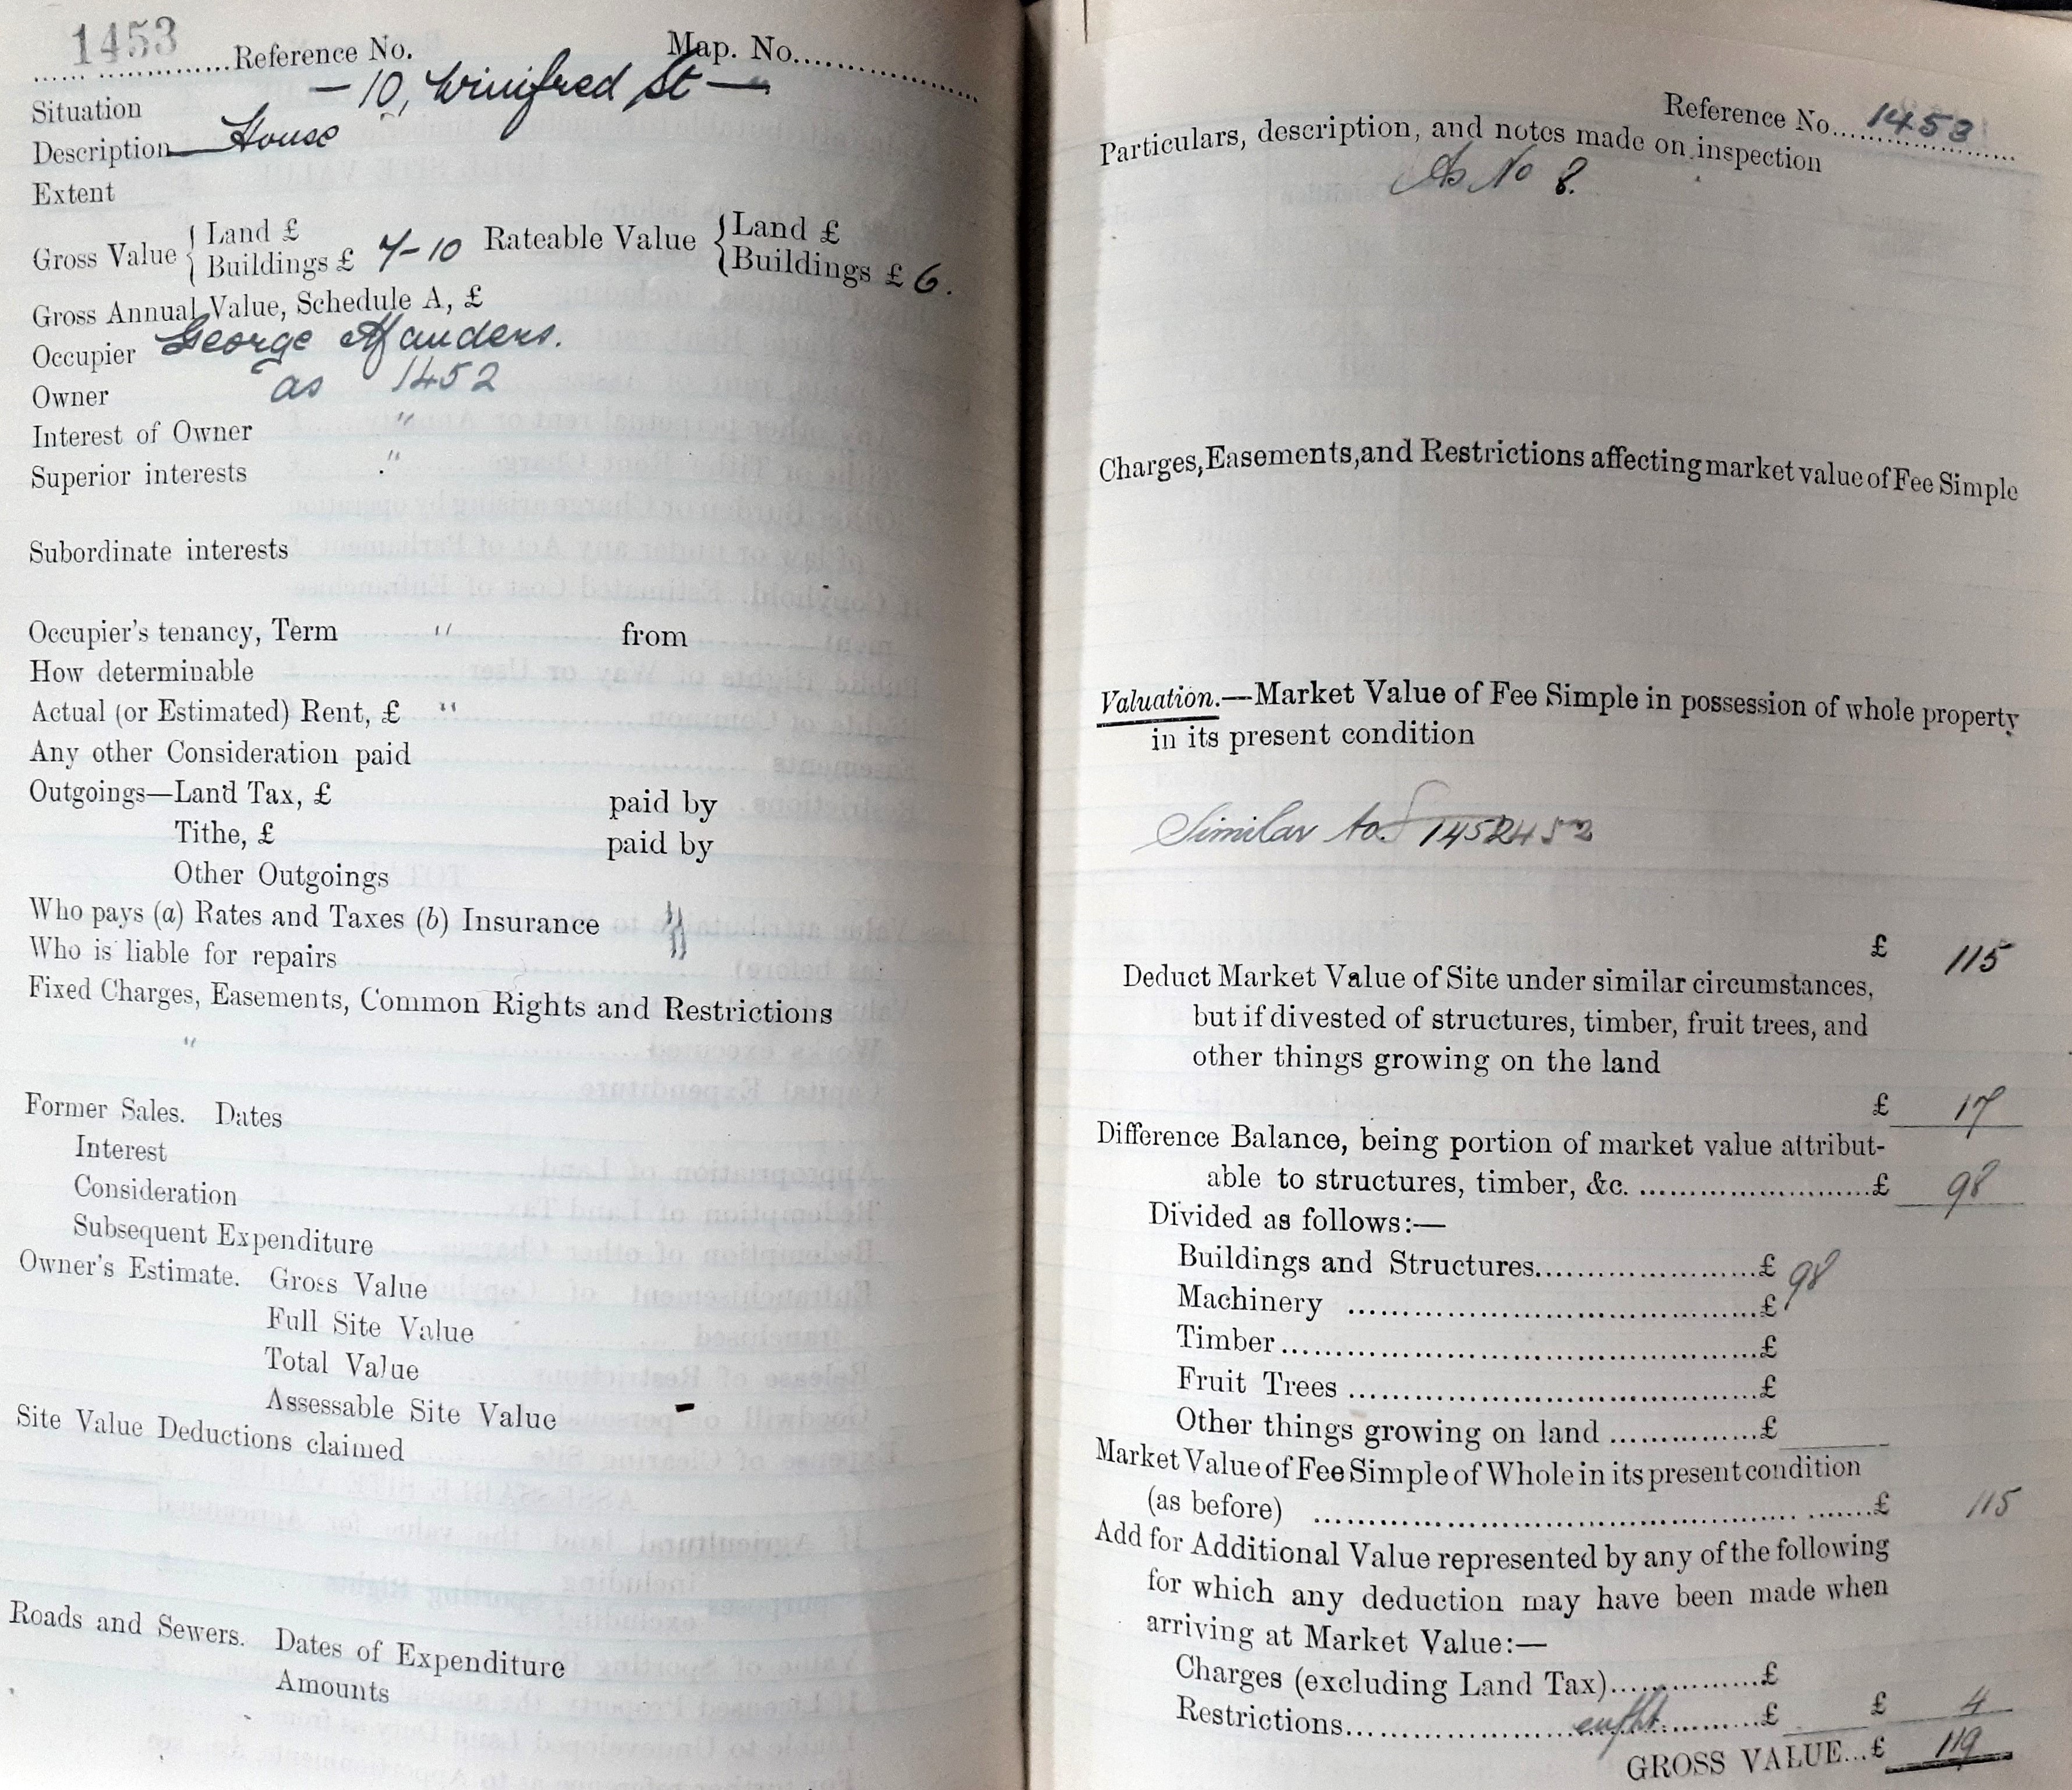 1453 Reference No. Map. No.
Situation — 10, Winifred St —
Description House
Extent
Gross Value { Land £ Rateable Value { Land £
Buildings £ 7-10 Buildings £ 6.
Gross Annual Value, Schedule A, £
Occupier George
Owner as 1452
Interest of Owner "
Superior interests "
Subordinate interests
Occupier's tenancy, Term " from
How determinable
Actual (or Estimated) Rent, £ "
Any other Consideration paid
Outgoings—Land Tax, £ paid by
Tithe, £ paid by
Other Outgoings
Who pays (a) Rates and Taxes (b) Insurance
Who is liable for repairs
Fixed Charges, Easements, Common Rights and Restrictions
"
Former Sales. Dates
Interest
Consideration
Subsequent Expenditure
Owner's Estimate. Gross Value
Full Site Value
Total Value
Assessable Site Value -
Site Value Deductions claimed
Roads and Sewers. Dates of Expenditure
Amounts
Reference No. 1453
Particulars, description, and notes made on inspection
As No 8.
Charges, Easements, and Restrictions affecting market value of Fee Simple
Valuation.—Market Value of Fee Simple in possession of whole property
in its present condition
Similar to 1452
£ 115
Deduct Market Value of Site under similar circumstances,
but if divested of structures, timber, fruit trees, and
other things growing on the land
£ 17
Difference Balance, being portion of market value attribut-
able to structures, timber, &c. £ 98
Divided as follows:—
Buildings and Structures £ 98
Machinery £
Timber £
Fruit Trees £
Other things growing on land £
Market Value of Fee Simple of Whole in its present condition
(as before) £ 115
Add for Additional Value represented by any of the following
for which any deduction may have been made when
arriving at Market Value:—
Charges (excluding Land Tax) £
Restrictions £ £ 4
GROSS VALUE...£ 119